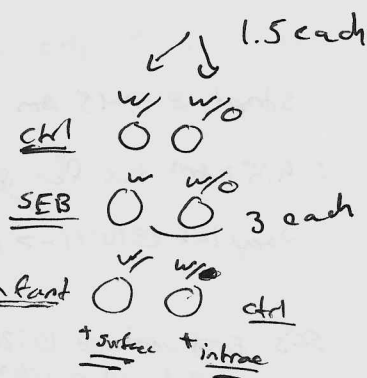 1.5 each
w/ w/o
ctrl
w w/o
SEB 3 each
w/ w/
ctrl
+ surface + intrac